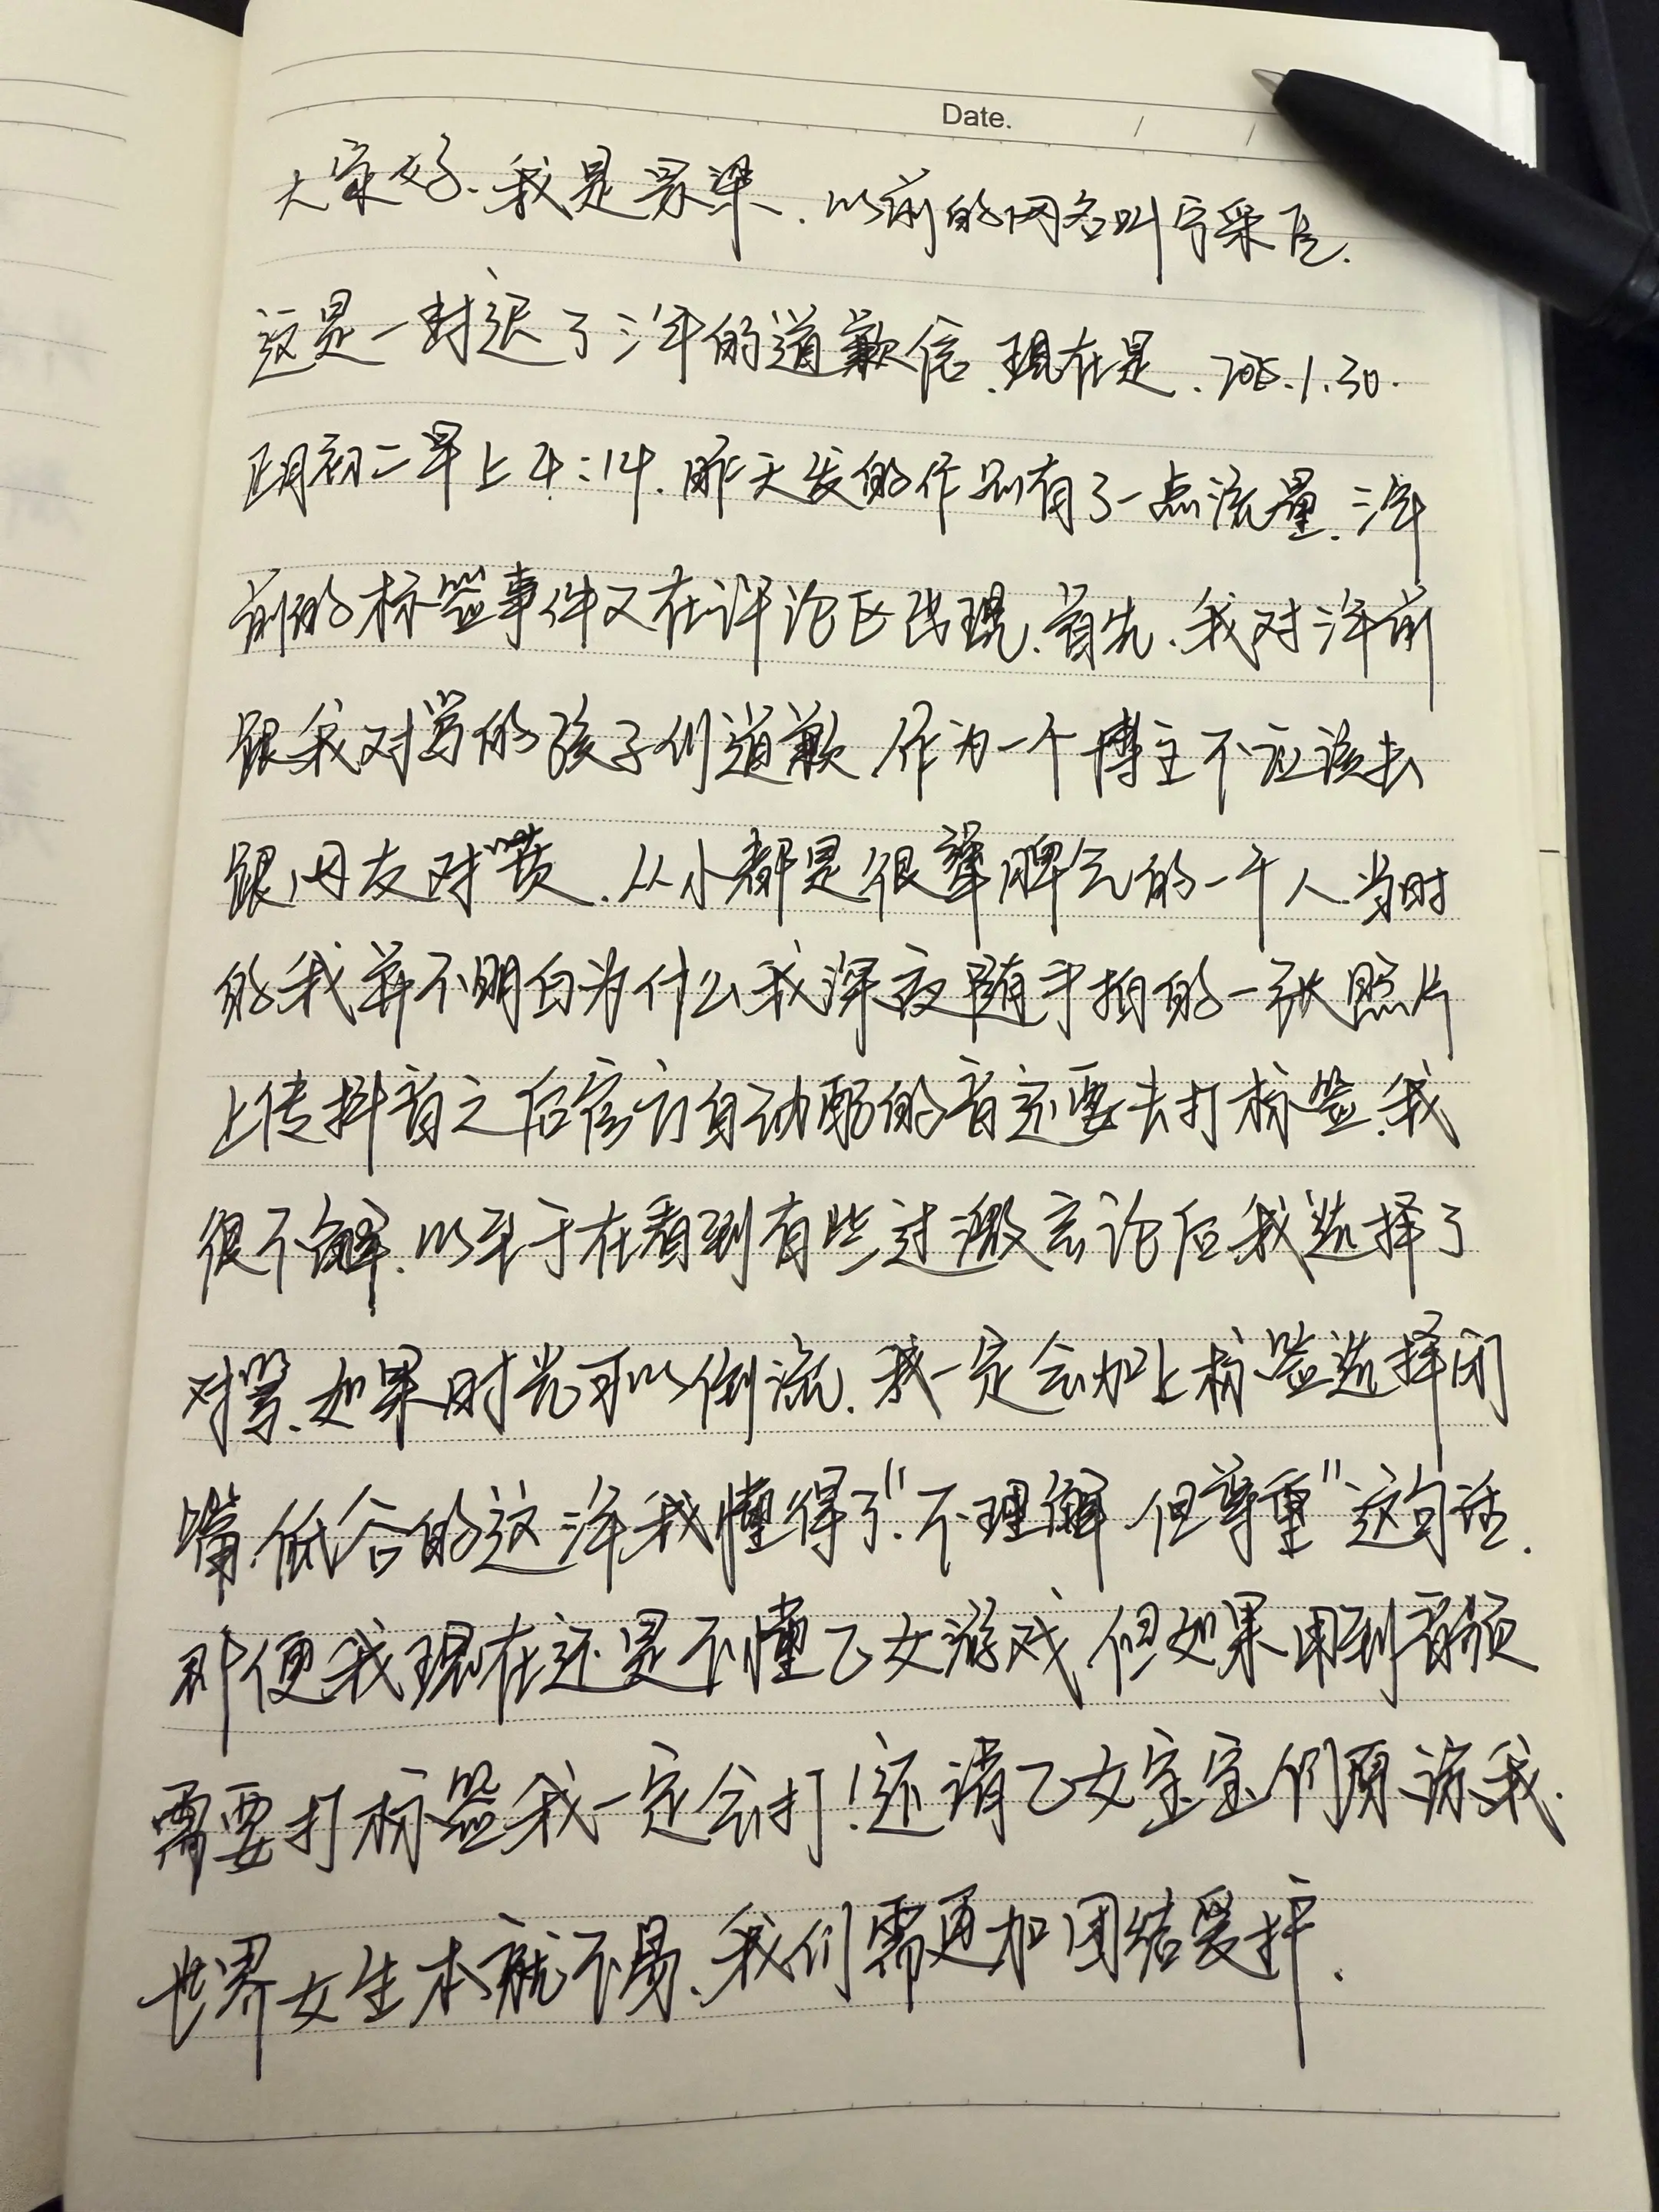 Date. / /
大家好.我是景琛.以前的网名叫宁采臣.
这是一封迟了三年的道歉信.现在是.2025.1.30.
正月初二早上4:14.昨天发的作品有了一点流量.三年
前的标签事件又在评论区出现.首先.我对三年前
跟我对骂的孩子们道歉.作为一个博主不应该去
跟网友对喷.从小都是很犟脾气的一个人.当时
的我并不明白为什么我深夜随手拍的一张照片
上传抖音之后官方自动配的音还要去打标签.我
很不解.以至于在看到有些过激言论后我选择了
对骂.如果时光可以倒流.我一定会加上标签选择闭
嘴.低谷的这三年我懂得了"不理解 但尊重"这句话.
即便我现在还是不懂乙女游戏.但如果用到音频
需要打标签我一定会打!还请乙女宝宝们原谅我.
世界女生本就不易.我们需更加团结爱护.